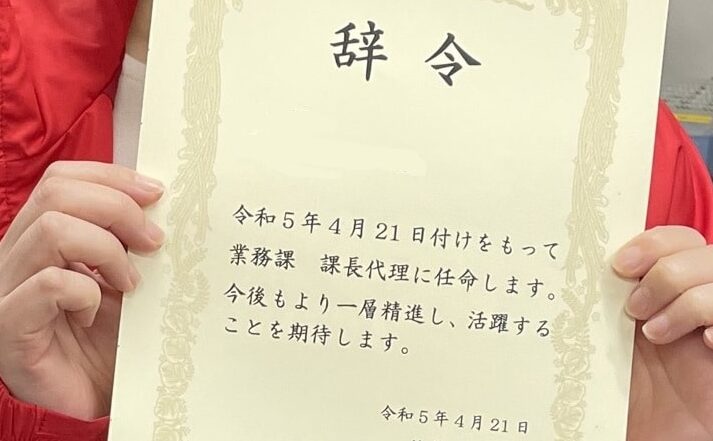 辞令
令和5年4月21日付けをもって
業務課　課長代理に任命します。
今後もより一層精進し、活躍する
ことを期待します。
令和5年4月21日